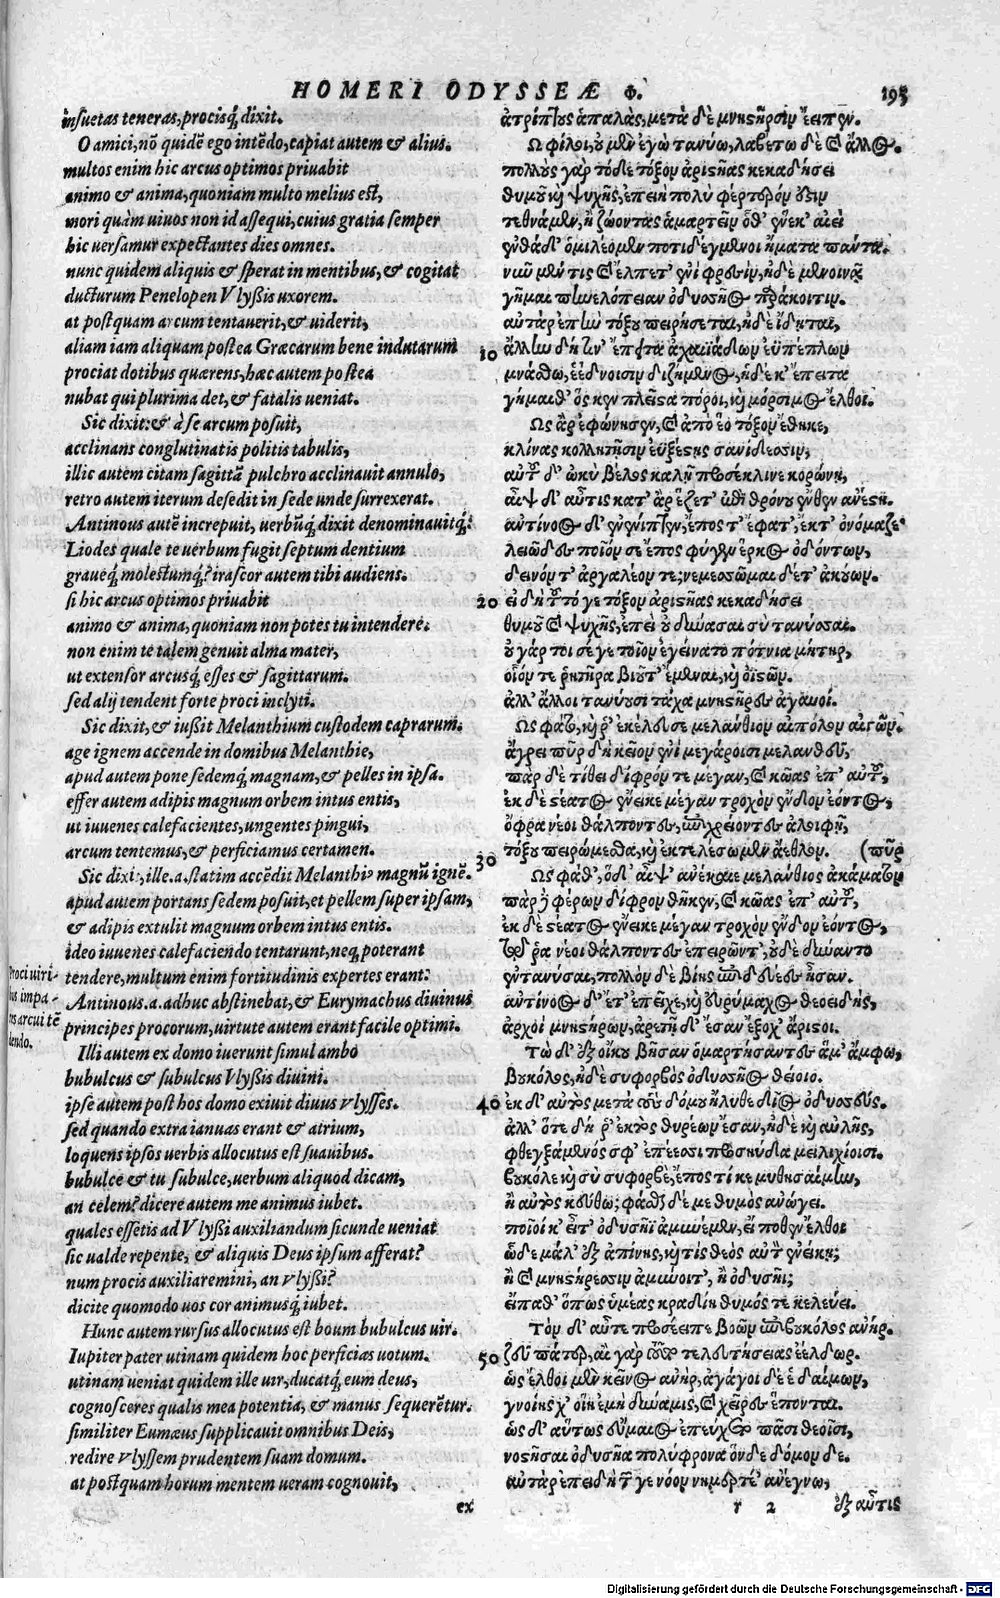 HOMERI ODYSSEÆ Φ. 195
insuetas teneras, procisq́; dixit.
O amici, nõ quidẽ ego intẽdo, capiat autem & alius.
multos enim hic arcus optimos priuabit
animo & anima, quoniam multo melius est,
mori quàm viuos non id assequi, cuius gratia semper
hic versamur expectantes dies omnes.
nunc quidem aliquis & sperat in mentibus, & cogitat
ducturum Penelopen Vlyßis uxorem.
at postquam arcum tentauerit, & uiderit,
aliam iam aliquam postea Græcarum bene indutarum
prociat dotibus quærens, hæc autem postea
nubat qui plurima det, & fatalis ueniat.
Sic dixit: & à se arcum posuit,
acclinans conglutinatis politis tabulis,
illic autem citam sagittã pulchro acclinauit annulo,
retro autem iterum desedit in sede unde surrexerat.
Antinous autẽ increpuit, verbũq́; dixit denominauitq́;:
Liodes quale te uerbum fugit septum dentium
graueq́; molestumq́;? irascor autem tibi audiens.
si hic arcus optimos priuabit
animo & anima, quoniam non potes tu intendere:
non enim te talem genuit alma mater,
ut extensor arcusq́; esses & sagittarum.
sed alij tendent forte proci inclyti.
Sic dixit, & iußit Melanthium custodem caprarum.
age ignem accende in domibus Melanthie,
apud autem pone sedemq́; magnam, & pelles in ipsa.
effer autem adipis magnum orbem intus entis,
ut iuuenes calefacientes, ungentes pingui,
arcum tentemus, & perficiamus certamen.
Sic dixi:, ille.a. statim accẽdit Melanthiꝰ magnũ ignẽ.
apud autem portans sedem posuit, et pellem super ipsam,
& adipis extulit magnum orbem intus entis.
ideo iuuenes calefaciendo tentarunt, neq; poterant
tendere, multum enim fortitudinis expertes erant:
Antinous.a. adhuc abstinebat, & Eurymachus diuinus
principes procorum, uirtute autem erant facile optimi.
Illi autem ex domo iuerunt simul ambo
bubulcus & subulcus Vlyßis diuini.
ipse autem post hos domo exiuit diuus vlysses.
sed quando extra ianuas erant & atrium,
loquens ipsos uerbis allocutus est suauibus.
bubulce & tu subulce, uerbum aliquod dicam,
an celem? dicere autem me animus iubet.
quales essetis ad Vlyßi auxiliandum sicunde ueniat
sic ualde repente, & aliquis Deus ipsum afferat?
num procis auxiliaremini, an vlyßi?
dicite quomodo uos cor animusq́; iubet.
Hunc autem rursus allocutus est boum bubulcus uir.
Iupiter pater utinam quidem hoc perficias uotum.
utinam ueniat quidem ille uir, ducatq́; eum deus,
cognosceres qualis mea potentia, & manus sequerẽtur.
similiter Eumæus supplicauit omnibus Deis,
redire vlyssem prudentem suam domum.
at postquam horum mentem ueram cognouit,
ex
Proci uiri-
bus impa-
res arcui tẽ
dendo.
ἀτρίπτους ἁπαλὰς, μετὰ δὲ μνηστῆρσιν ἔειπεν.
Ω φίλοι, οὐ μὲν ἐγὼ τανύω, λαβέτω δὲ καὶ ἄλλος.
πολλοὺς γὰρ τόδε τόξον ἀριστῆας κεκαδήσει
θυμοῦ κὶ ψυχῆς, ἐπειὴ πολὺ φέρτερόν ὅξιν
τεθνάμεν, ἢ ζώοντας ἁμαρτεῖν ὅθ' οὕνεκ' αἰεὶ
ἐνθάδ' ὁμιλέομεν ποτιδέγμενοι ἤματα πάντα.
νῦν μέν τις καὶ ἔλπετ' ἐνὶ φρεσὶν, ἠδὲ μενοινᾷ
γῆμαι πηνελόπειαν ὀδυσσῆος παράκοιτιν.
αὐτὰρ ἐπὴν τόξου πειρήσεται, ἠδὲ ἴδηται,
10 ἄλλην δή τιν' ἔπειτα ἀχαιϊάδων ἐϋπέπλων
μνάσθω, ἐέδνοισιν διζήμενος, ἡδέ κ' ἔπειτα
γήμαιθ' ὅς κεν πλεῖστα πόροι, κὶ μόρσιμος ἔλθοι.
Ως ἂρ ἐφώνησεν, καὶ ἀπὸ ἕο τόξον ἔθηκε,
κλίνας κολλητῆσιν ἐϋξέστης σανίδεσσιν,
αὐτοῦ δ' ὠκὺ βέλος καλῇ προσέκλινε κορώνῃ,
αἶψ δ' αὖτις κατ' ἂρ ἕζετ' ἐπὶ θρόνου ἔνθεν ἀνέστη.
ἀντίνοος δ' ἐνένιπτεν, ἔπος τ' ἔφατ', ἔκτ' ὀνόμαζε.
λειῶδες ποῖόν σε ἔπος φύγεν ἕρκος ὀδόντων,
δεινόν τ' ἀργαλέον τε; νεμεσσῶμαι δέ τ' ἀκούων.
20 εἰ δὴ τοῦτό γε τόξον ἀριστῆας κεκαδήσει
θυμοῦ καὶ ψυχῆς, ἐπεὶ οὐ δύνασαι σὺ τανύσσαι.
οὐ γάρ τοι σέ γε τοῖον ἐγείνατο πότνια μήτηρ,
οἷόν τε ῥητῆρα βιοῦτ' ἔμεναι, κὶ ὀϊστῶν.
ἀλλ' ἄλλοι τανύουσι τάχα μνηστῆρες ἀγαυοί.
Ως φάτο, κὶ ῥ' ἐκέλευσε μελάνθιον αἰπόλον αἰγῶν.
ἄγρει πῦρ δὴ κεῖον ἐνὶ μεγάροισι μελανθεῦ,
πὰρ δὲ τίθει δίφρόν τε μέγαν, καὶ κῶας ἐπ' αὐτοῦ,
ἐκ δὲ στέατος ἔνεικε μέγαν τροχὸν ἔνδον ἐόντος,
ὄφρα νέοι θάλποντες, ἐπιχρίοντες ἀλοιφῇ,
30 τόξου πειρώμεσθα, κὶ ἐκτελέσωμεν ἄεθλον. (πῦρ
Ως φάθ', ὁ δ' αἶψ' ἀνέκαιε μελάνθιος ἀκάματον
πὰρ δὲ φέρων δίφρον θῆκεν, καὶ κῶας ἐπ' αὐτοῦ,
ἐκ δὲ στέατος ἔνεικε μέγαν τροχὸν ἔνδον ἐόντος,
τῷ ῥα νέοι θάλποντες ἐπειρῶντ', οὐδὲ δύναντο
ἐντανύσαι, πολλὸν δὲ βίης ἐπιδευέες ἦσαν.
ἀντίνοος δ' ἔτ' ἐπεῖχε, κὶ εὐρύμαχος θεοειδὴς,
ἀρχοὶ μνηστήρων, ἀρετῇ δ' ἔσαν ἔξοχ' ἄριστοι.
Τὼ δ' ἐξ οἴκου βῆσαν ὁμαρτήσαντες ἅμ' ἄμφω,
βουκόλος, ἠδὲ συφορβὸς ὀδυσσῆος θείοιο.
40 ἐκ δ' αὐτὸς μετὰ τοὺς δόμου ἤλυθε δῖος ὀδυσσεύς.
ἀλλ' ὅτε δή ῥ' ἐκτὸς θυρέων ἔσαν, ἠδὲ κὶ αὐλῆς,
φθεγξάμενός σφ' ἐπέεσσι προσηύδα μειλιχίοισι.
βουκόλε κὶ σὺ συφορβὲ, ἔπος τί κε μυθησαίμην,
ἢ αὐτὸς κεύθω; φάσθαι δέ με θυμὸς ἀνώγει.
ποῖοί κ' εἶτ' ὀδυσῆϊ ἀμυνέμεν, εἴ ποθεν ἔλθοι
ὧδε μάλ' ἐξ απίνης, κὶ τὶς θεὸς αὐτὸν ἐνείκῃ;
ἢ καὶ μνηστήρεσσιν ἀμύνοιτ', ἢ ὀδυσῆι;
εἴπαθ' ὅπως ὑμέας κραδίη θυμός τε κελεύει.
Τὸν δ' αὖτε προσέειπε βοῶν ἐπιβουκόλος ἀνήρ.
50 ζεῦ πάτερ, αἲ γὰρ τοῦτο τελευτήσειας ἐέλδωρ.
ὡς ἔλθοι μὲν κεῖνος ἀνὴρ, ἀγάγοι δέ ἑ δαίμων,
γνοίης χ' οἵη ἐμὴ δύναμις, καὶ χεῖρες ἕπονται.
ὡς δ' αὔτως εὔμαιος ἐπεύχετο πᾶσι θεοῖσι,
νοστῆσαι ὀδυσῆα πολύφρονα ὅνδε δόμον δε.
αὐτὰρ ἐπειδὴ τῶν γε νόον νημερτέ' ἀνέγνω,
r 2 ἐξ αὖτις
Digitalisierung gefördert durch die Deutsche Forschungsgemeinschaft - DFG